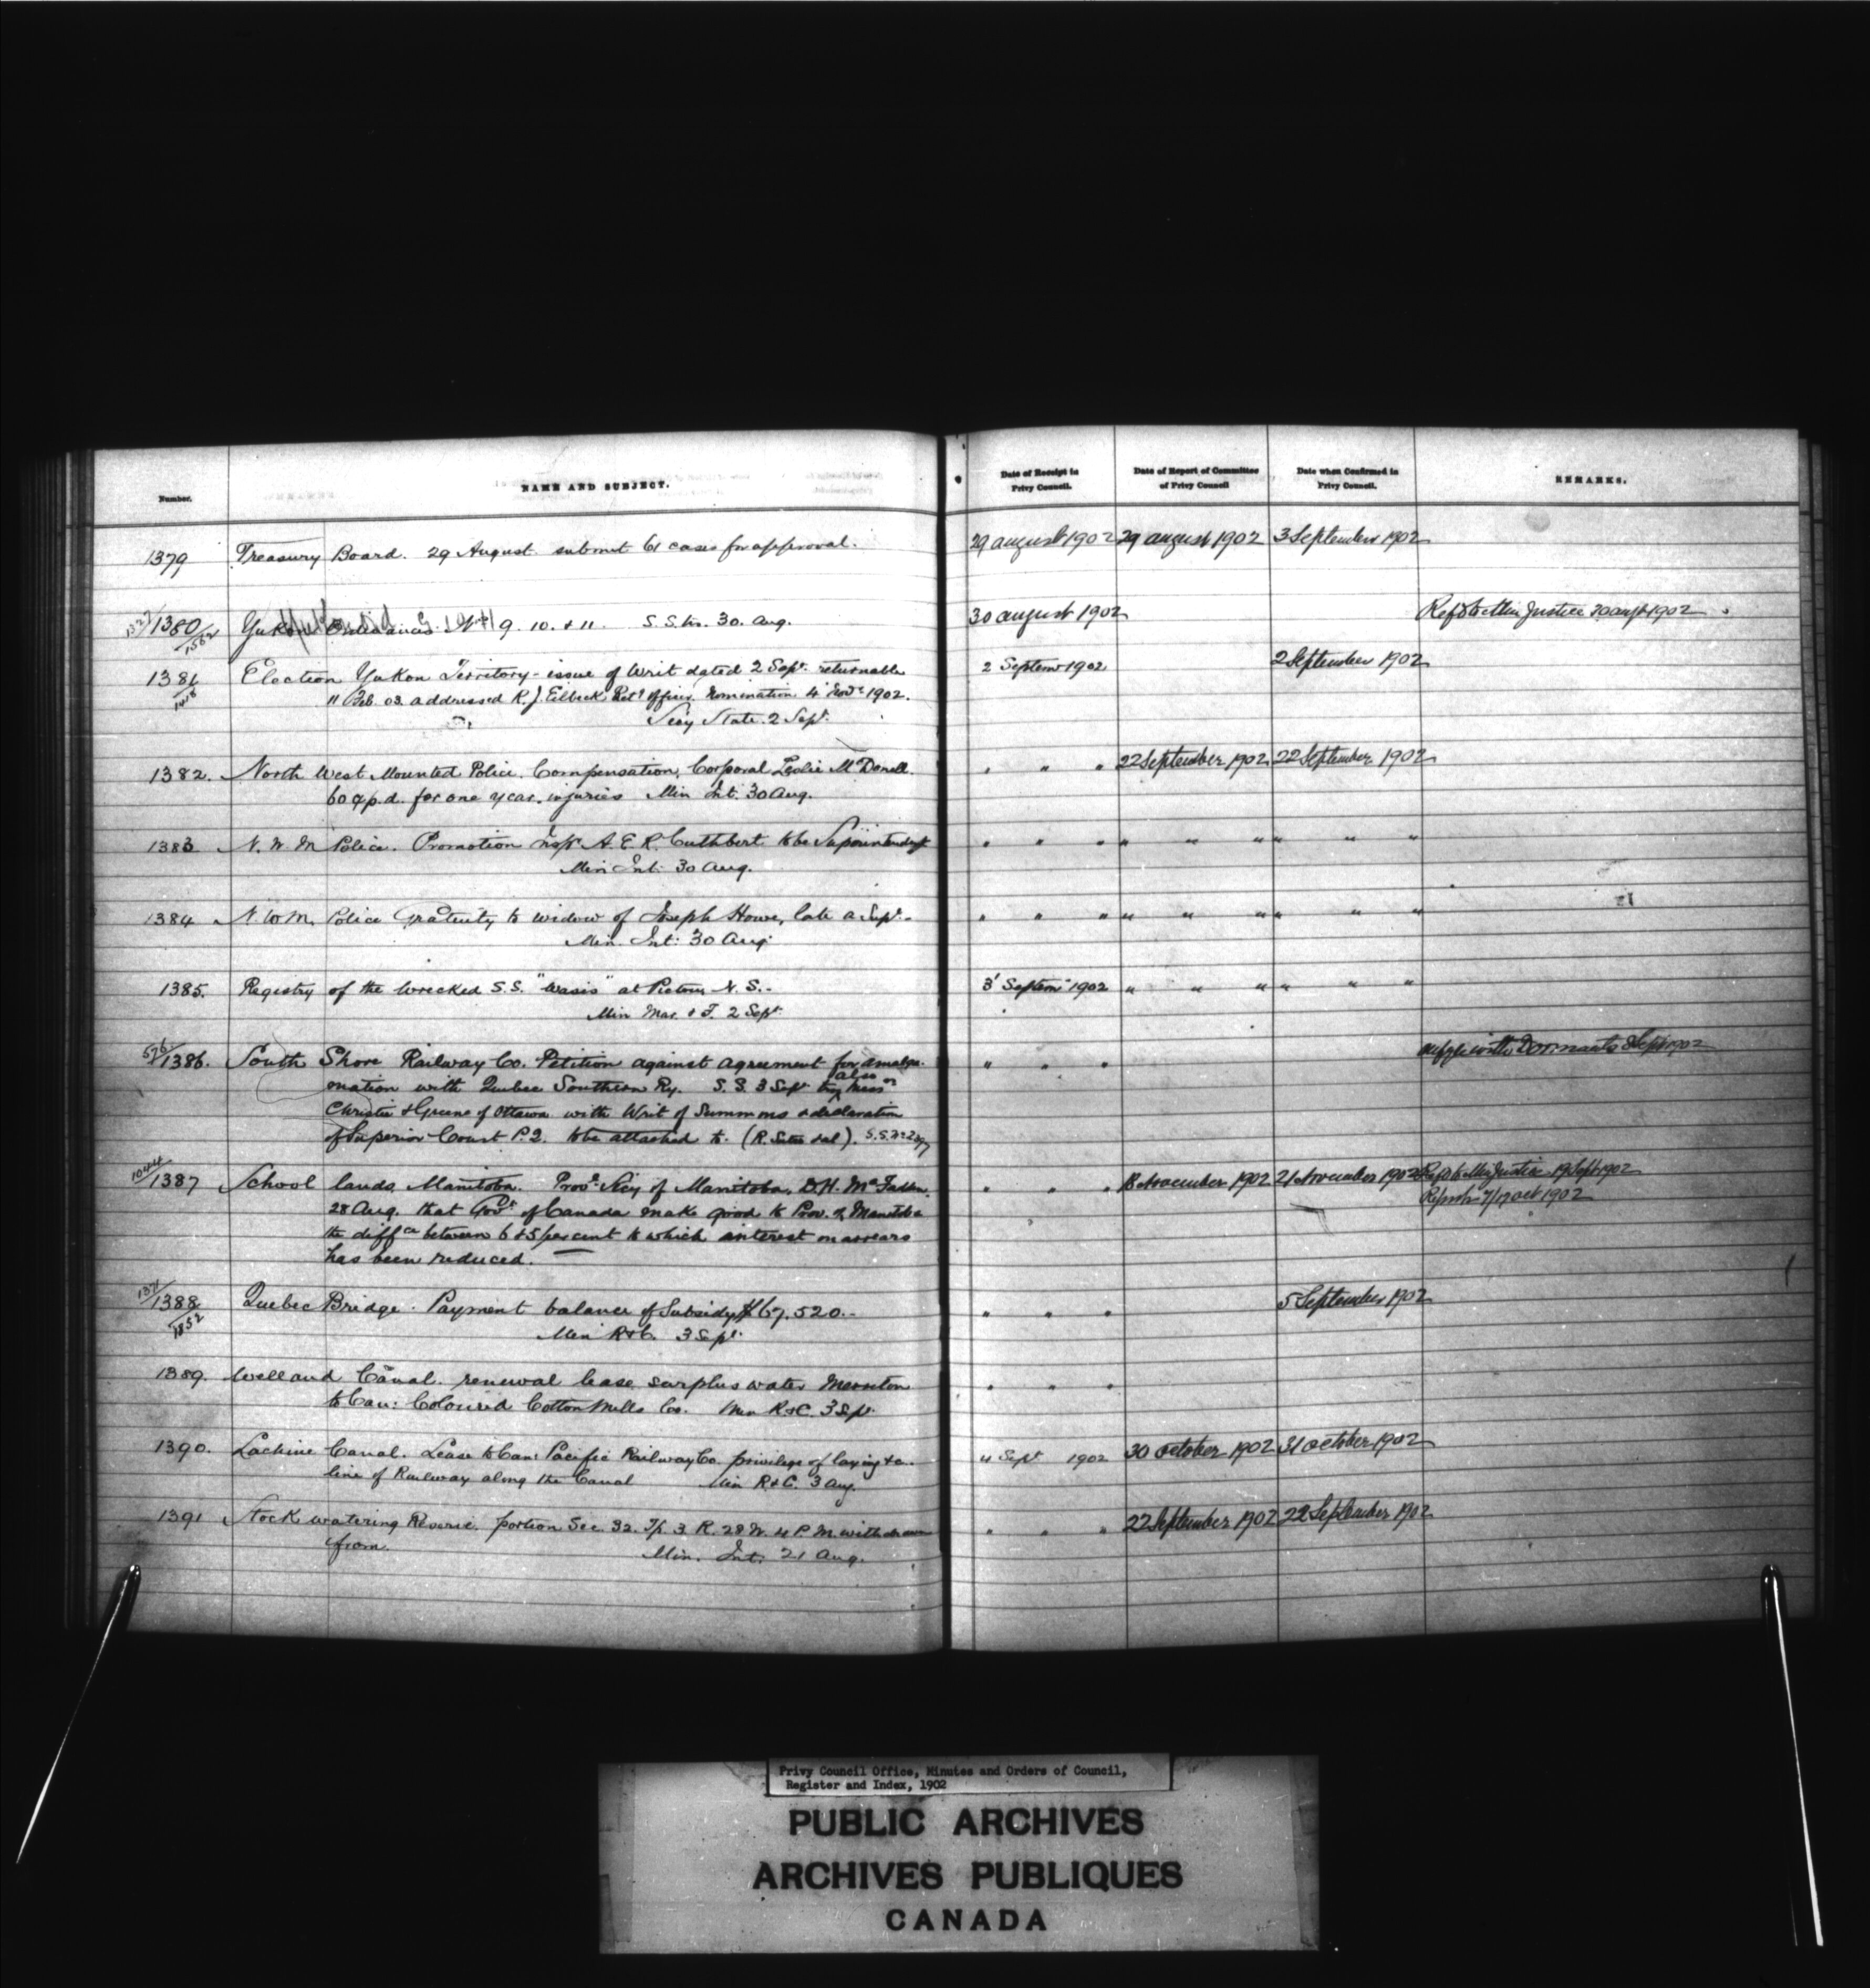 Number.
NAME AND SUBJECT.
Date of Receipt in Privy Council.
Date of Report of Committee of Privy Council
Date when Confirmed in Privy Council.
REMARKS.
1379 Treasury Board. 29 August submit 61 cases for approval. 29 august 1902 29 august 1902 3 September 1902
1380 Yukon Ordinances 9. 10. & 11. 30. Aug. 30 august 1902 Refd to Min Justice 30 augst 1902
1562
1381 Election Yukon Territory - issue of Writ dated 2 Sept. returnable 2 Septemr 1902 2 September 1902
1418 11 Feb. 03. addressed R. J. Eilbeck Retg officer. Nomination 4 Novr 1902.
Secy State. 2 Sept.
1382. North West Mounted Police. Compensation, Corporal Leslie McDonell. " " " 22 September 1902 22 September 1902
60 ¢ p.d. for one year. injuries Min Int. 30 Aug.
1383 N. W. M Police. Promotion Insp. A. E. R. Cuthbert to be Superintendent " " " " " " " " "
Min Int. 30 Aug.
1384 N. W. M. Police Gratuity to widow of Joseph Howe, late a Supt. " " " " " " " " "
Min. Int: 30 Aug.
1385. Registry of the Wrecked S.S. "Wasis" at Pictou N.S. 3 Septem 1902 " " " " " "
Min Mar. & F. 2 Sept.
576/1386. South Shore Railway Co. Petition against agreement for amalga- " " " Sept 1902
mation with Quebec Southern Ry. S.S. 3 Sept also
Christie & Greene of Ottawa with Writ of Summons & declaration
of Superior Court P.Q. to be attached to.
1044/1387 School lands Manitoba. Provl Secy of Manitoba, D.H. McFadden, " " " 18 November 1902 21 November 1902 Refd to Min Justice 19 Sept 1902
28 Aug. that Govt of Canada make good to Prov. of Manitoba 1902
the diffce between 6 & 5 per cent to which interest on arrears
has been reduced.
1388 Quebec Bridge. Payment balance of Subsidy $67,520.- " " " 5 September 1902
1852 Min R&C. 3 Sept.
1389. Welland Canal. renewal lease surplus water Merritton " " "
to Can: Coloured Cotton Mills Co. Min R&C. 3 Sept.
1390. Lachine Canal. Lease to Can: Pacific Railway Co. privilege of laying &c. 4 Sept 1902 30 October 1902 31 October 1902
line of Railway along the Canal Min R&C. 3 Aug.
1391 Stock watering Reserve. portion Sec. 32. Tp. 3 R. 28 W. 4 P.M. withdrawn " " " 22 September 1902 22 September 1902
from. Min. Int: 21 Aug.
Privy Council Office, Minutes and Orders of Council,
Register and Index, 1902
PUBLIC ARCHIVES
ARCHIVES PUBLIQUES
CANADA